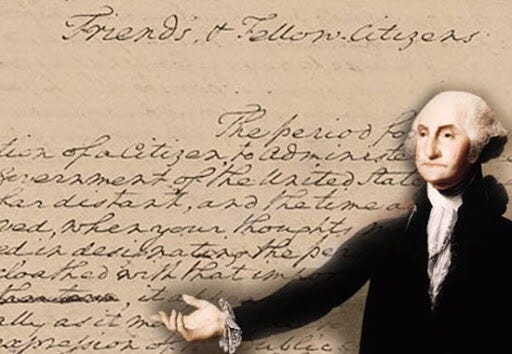 Friends, & Fellow-Citizens
The period fo
tion of a Citizen, to administe
overnment of the United Stat
har distant, and the time a
ved, when your thoughts m
ed in designating the per
cloathed with that im
it ap
ally as it m
expression of publick